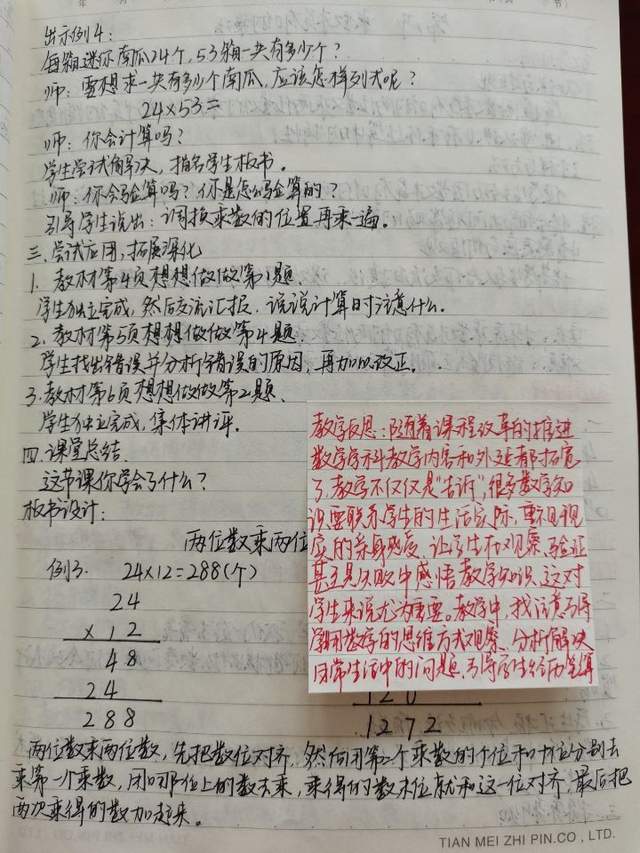 出示例4:
每箱迷你南瓜24个,53箱一共有多少个?
师:要想求一共有多少个南瓜,应该怎样列式呢?
24×53=
师:你会计算吗?
学生尝试解决,指名学生板书。
师:你会验算吗?你是怎么验算的?
引导学生说出:调换乘数的位置再乘一遍。
三.尝试应用,拓展深化
1.教材第4页想想做做第1题
学生独立完成,然后交流汇报.说说计算时注意什么.
2.教材第5页想想做做第4题.
学生找出错误并分析错误的原因,再加以改正.
3.教材第6页想想做做第2题.
学生独立完成,集体讲评.
四.课堂总结.
这节课你学会了什么?
板书设计:
两位数乘两位
例3. 24×12=288(个)
24
×12
48
24
288
教学反思:随着课程改革的推进
数学学科教学内容和外延都拓宽
了.教学不仅仅是"告诉",很多数学知
识要联系学生的生活实际,重视现
实的亲身感受,让学生在观察、验证
甚至是失败中感悟数学知识.这对
学生来说尤为重要。教学中,我注意引导
学生用数学的思维方式观察、分析解决
日常生活中的问题.引导学生经历笔算
120
1272
两位数乘两位数,先把数位对齐.然后用第二个乘数的个位和十位分别去
乘第一个乘数,用哪位上的数去乘,乘得的数末位就和这一位对齐,最后把
两次乘得的数加起来。
TIAN MEI ZHI PIN.CO., LTD.